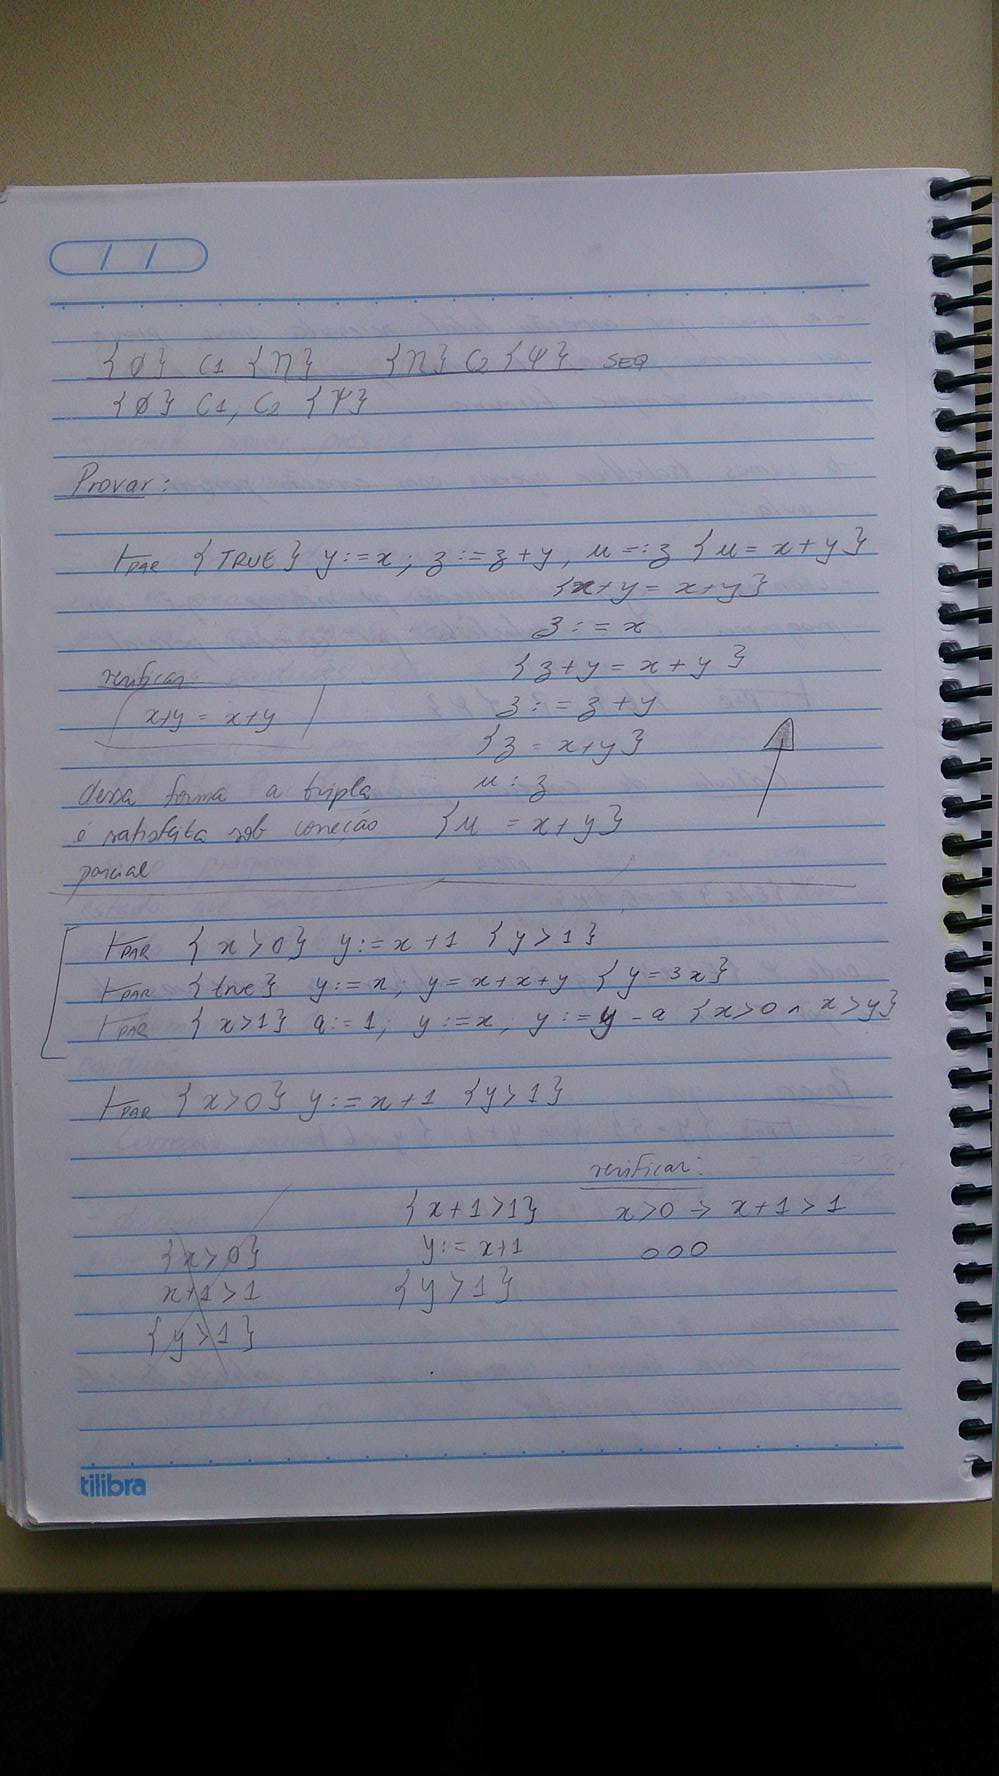 {ø} C1 {η} {η} C2 {Ψ} SEQ
{ø} C1, C2 {Ψ}
Provar:
⊢PAR {TRUE} y:=x; z:=z+y, u=:z {u=x+y}
{x+y = x+y}
z:=x
{z+y = x+y}
z:=z+y
{z = x+y}
u:z
{u = x+y}
verificar
x+y = x+y
dessa forma a tripla
é satisfeita sob correção
parcial
⊢PAR {x>0} y:=x+1 {y>1}
⊢PAR {true} y:=x; y=x+x+y {y=3x}
⊢PAR {x>1} a:=1; y:=x, y:=y-a {x>0 ∧ x>y}
⊢PAR {x>0} y:=x+1 {y>1}
{x>0}
x+1>1
{y>1}
{x+1>1}
y:= x+1
{y>1}
verificar:
x>0 → x+1>1
ooo
tilibra